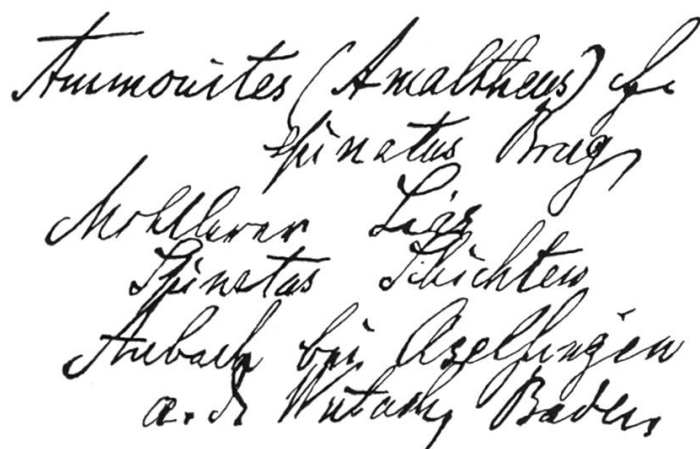 Ammonites (Amaltheus) cf.
spinatus Brug.
Mittlerer Lias
Spinatus Schichten
Aubach bei Aselfingen
a. d. Wutach, Baden